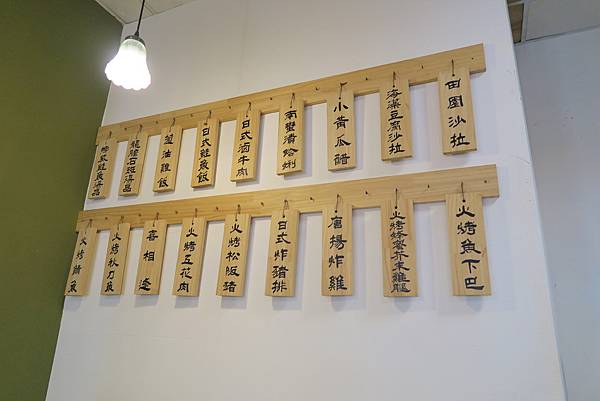 田園沙拉
海藻豆腐沙拉
小黃瓜醋
南蠻漬蛤蜊
日式滷牛肉
日式鮭魚飯
蔥油雞飯
龍膽石斑湯品
鮭魚湯品
火烤魚下巴
火烤蜂蜜芥末雞腿
唐楊炸雞
日式炸豬排
火烤松阪豬
火烤五花肉
喜相逢
火烤秋刀魚
火烤鯖魚